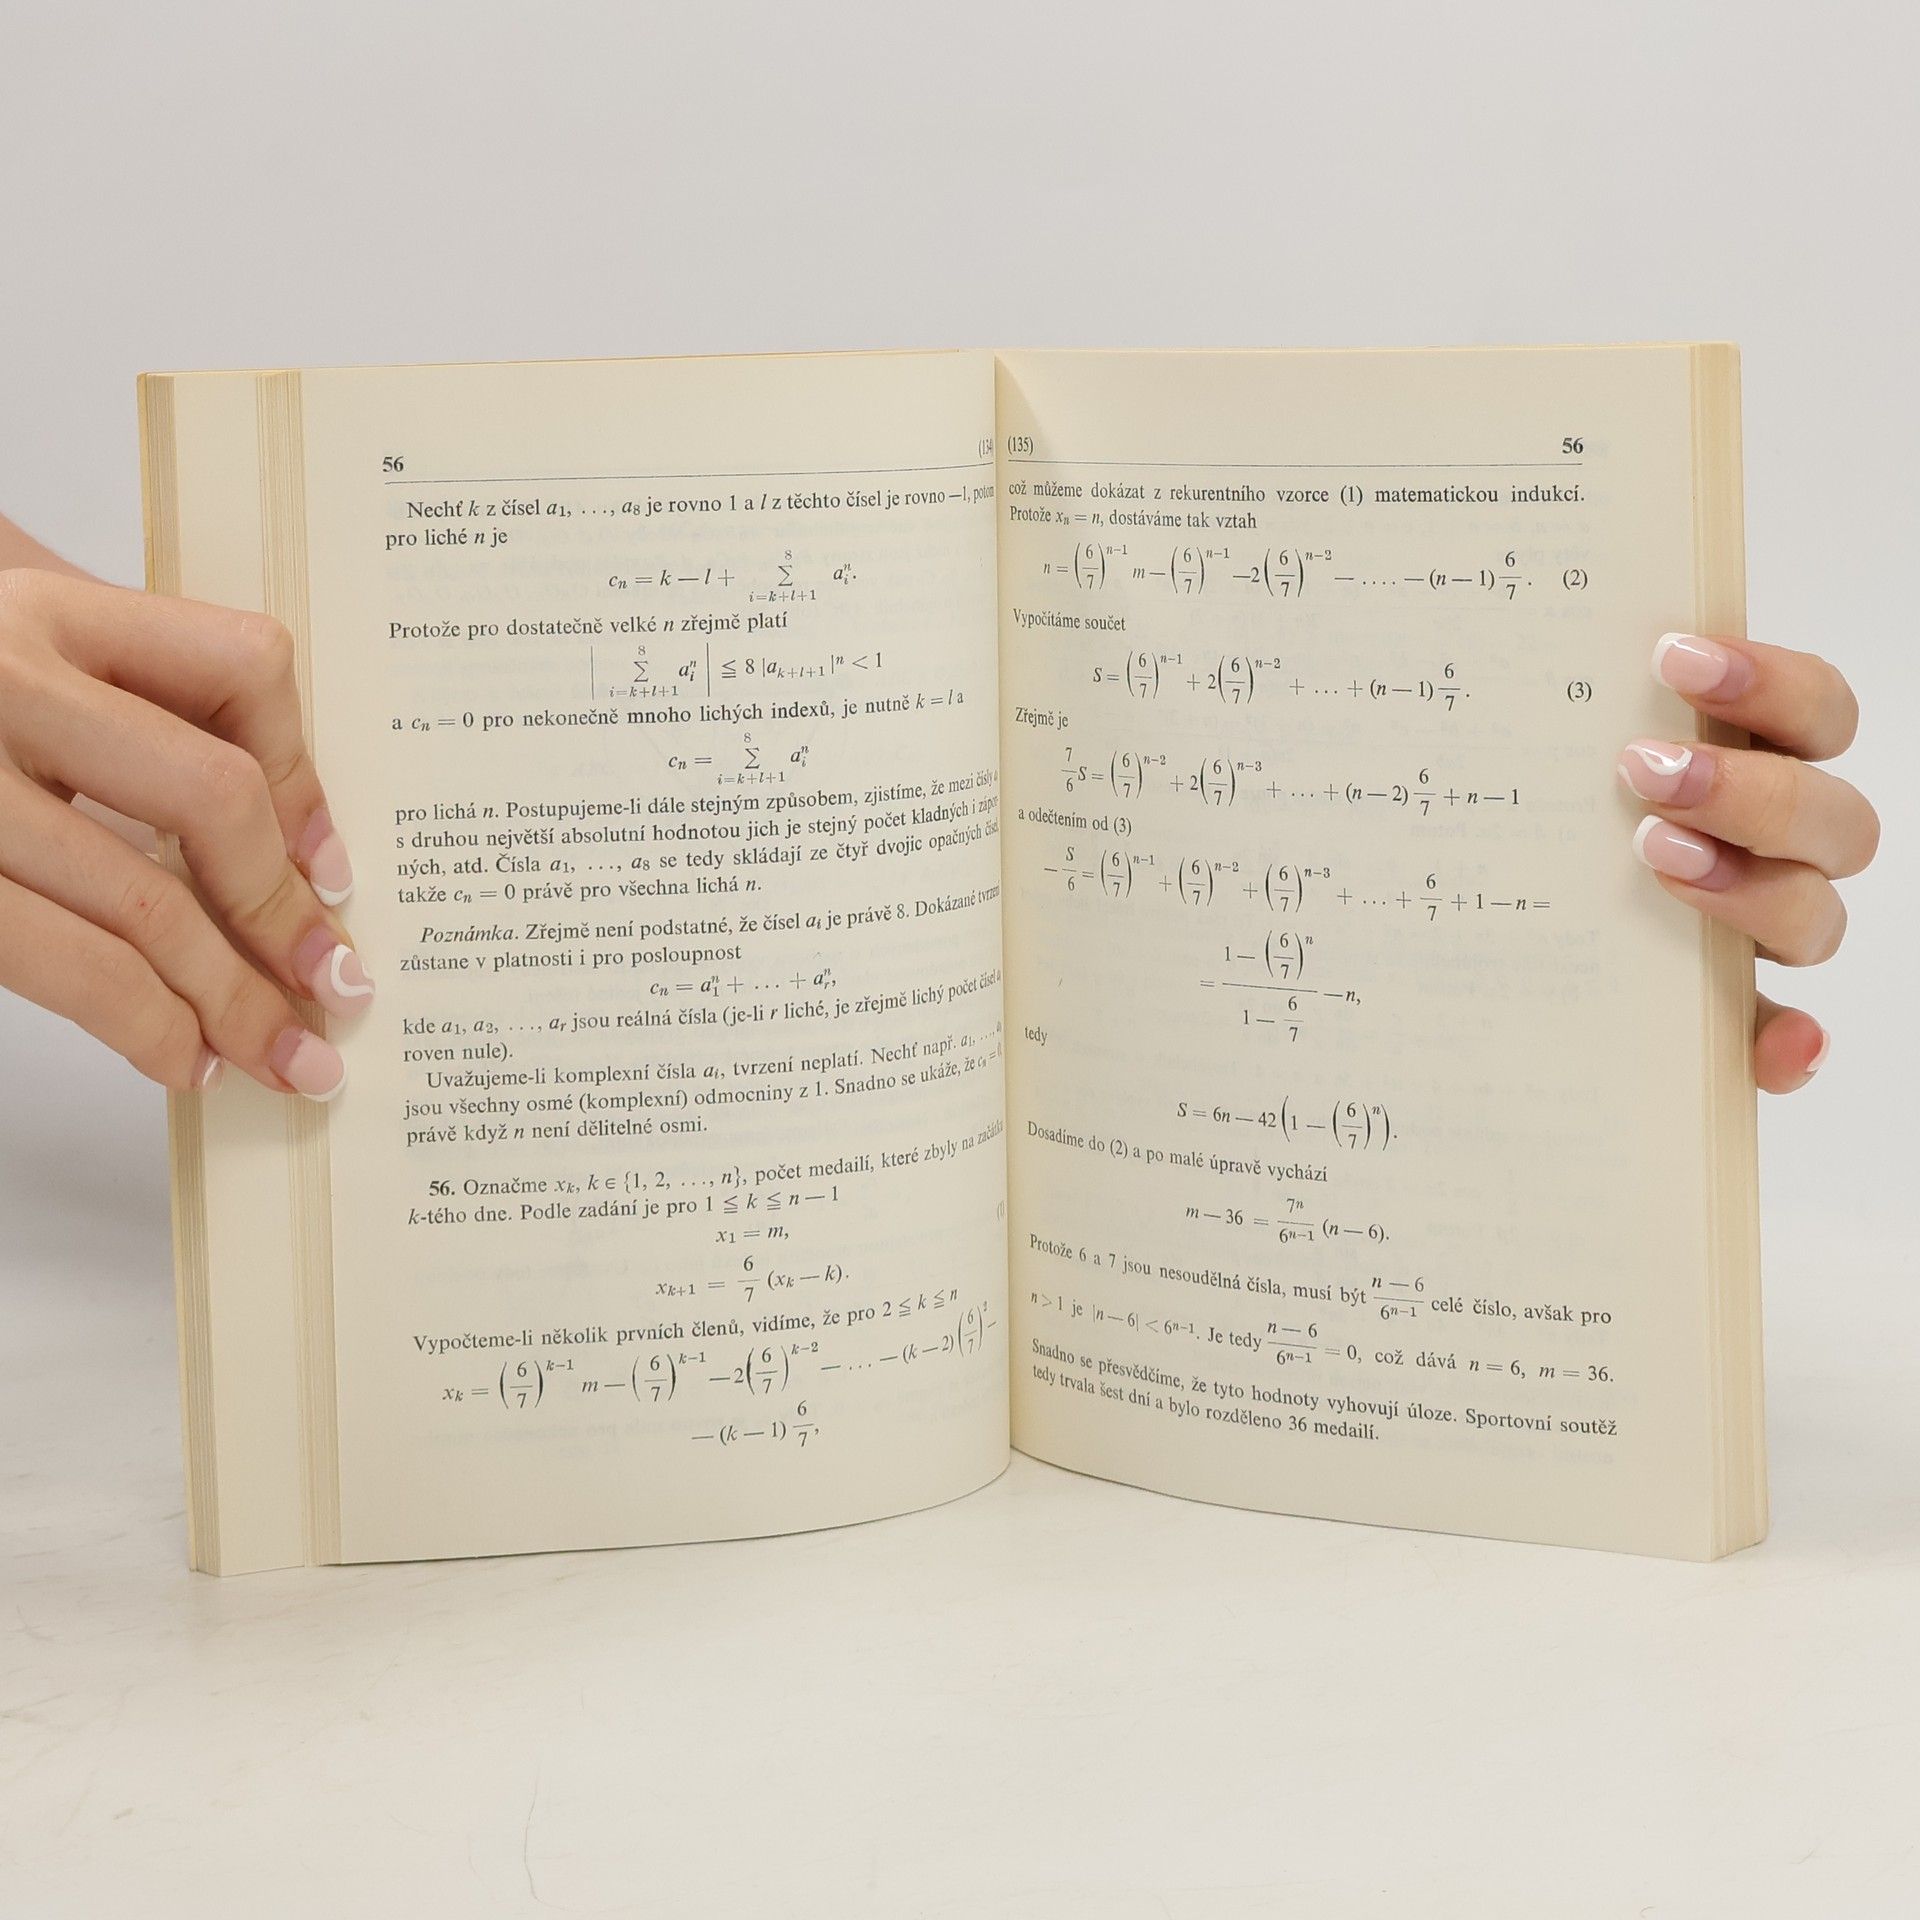 56
(134)
Nechť k z čísel a₁, ..., a₈ je rovno 1 a l z těchto čísel je rovno —1, potom
pro liché n je
cₙ = k — l + ∑_{i=k+l+1}^{8} aᵢⁿ.
Protože pro dostatečně velké n zřejmě platí
| ∑_{i=k+l+1}^{8} aᵢⁿ | ≦ 8 |a_{k+l+1}|ⁿ < 1
a cₙ = 0 pro nekonečně mnoho lichých indexů, je nutně k = l a
cₙ = ∑_{i=k+l+1}^{8} aᵢⁿ
pro lichá n. Postupujeme-li dále stejným způsobem, zjistíme, že mezi čísly
s druhou největší absolutní hodnotou jich je stejný počet kladných i zápor-
ných, atd. Čísla a₁, ..., a₈ se tedy skládají ze čtyř dvojic opačných čísel,
takže cₙ = 0 právě pro všechna lichá n.
Poznámka. Zřejmě není podstatné, že čísel aᵢ je právě 8. Dokázané tvrzení
zůstane v platnosti i pro posloupnost
cₙ = a₁ⁿ + ... + aᵣⁿ,
kde a₁, a₂, ..., aᵣ jsou reálná čísla (je-li r liché, je zřejmě lichý počet čísel
roven nule).
Uvažujeme-li komplexní čísla aᵢ, tvrzení neplatí. Nechť např. a₁, ...,
jsou všechny osmé (komplexní) odmocniny z 1. Snadno se ukáže, že cₙ = 0,
právě když n není dělitelné osmi.
56. Označme xₖ, k ∈ {1, 2, ..., n}, počet medailí, které zbyly na začátku
k-tého dne. Podle zadání je pro 1 ≦ k ≦ n — 1
x₁ = m, (1)
xₖ₊₁ = 6/7 (xₖ — k).
Vypočteme-li několik prvních členů, vidíme, že pro 2 ≦ k ≦ n
xₖ = (6/7)^{k—1} m — (6/7)^{k—1} — 2(6/7)^{k—2} — ... — (k — 2)(6/7)² —
— (k — 1) 6/7,
(135)
56
což můžeme dokázat z rekurentního vzorce (1) matematickou indukcí.
Protože xₙ = n, dostáváme tak vztah
n = (6/7)^{n—1} m — (6/7)^{n—1} — 2(6/7)^{n—2} — .... — (n — 1) 6/7. (2)
Vypočítáme součet
S = (6/7)^{n—1} + 2(6/7)^{n—2} + ... + (n — 1) 6/7. (3)
Zřejmě je
7/6 S = (6/7)^{n—2} + 2(6/7)^{n—3} + ... + (n — 2) 6/7 + n — 1
a odečtením od (3)
— S/6 = (6/7)^{n—1} + (6/7)^{n—2} + (6/7)^{n—3} + ... + 6/7 + 1 — n =
= (1 — (6/7)ⁿ)/(1 — 6/7) — n,
tedy
S = 6n — 42 (1 — (6/7)ⁿ).
Dosadíme do (2) a po malé úpravě vychází
m — 36 = 7ⁿ/6ⁿ⁻¹ (n — 6).
Protože 6 a 7 jsou nesoudělná čísla, musí být (n — 6)/6ⁿ⁻¹ celé číslo, avšak pro
n > 1 je |n — 6| < 6ⁿ⁻¹. Je tedy (n — 6)/6ⁿ⁻¹ = 0, což dává n = 6, m = 36.
Snadno se přesvědčíme, že tyto hodnoty vyhovují úloze. Sportovní soutěž
tedy trvala šest dní a bylo rozděleno 36 medailí.